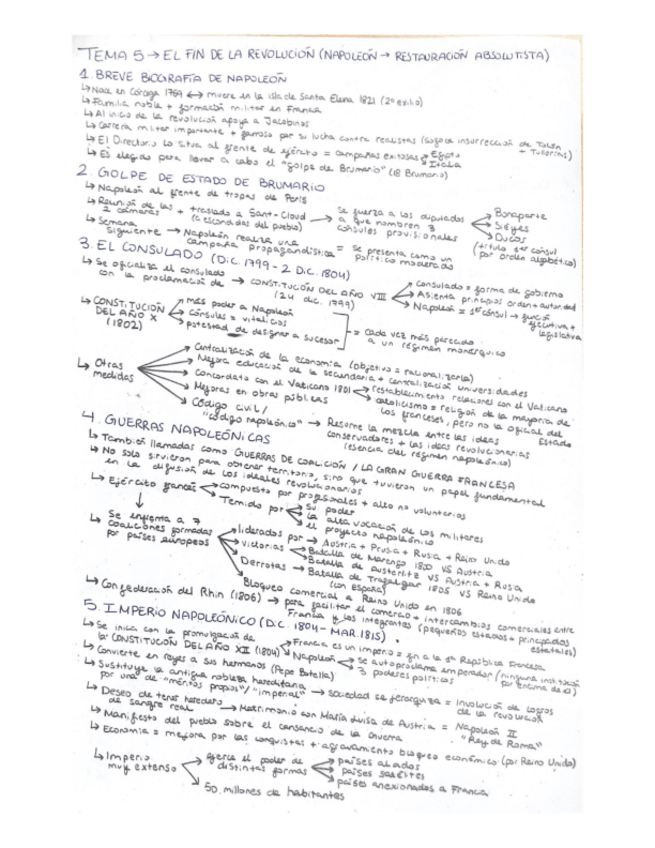 TEMA 5 → EL FIN DE LA REVOLUCIÓN (NAPOLEÓN → RESTAURACIÓN ABSOLUTISTA)
1. BREVE BIOGRAFÍA DE NAPOLEÓN
↳ Nace en Córcega 1769 ↔ muere en la isla de Santa Elena 1821 (2º exilio)
↳ Familia noble + formación militar en Francia
↳ Al inicio de la revolución apoya a Jacobinos
↳ Carrera militar importante + famoso por su lucha contra realistas (sofoca insurrección de Tolón + Tullerías)
↳ El Directorio lo situa al frente de ejército = campañas exitosas → Egipto
→ Italia
↳ Es elegido para llevar a cabo el "golpe de Brumario" (18 Brumario)
2. GOLPE DE ESTADO DE BRUMARIO
↳ Napoleón al frente de tropas de París
↳ Reunión de las 2 cámaras + traslado a Saint-Cloud (a escondidas del pueblo) → Se fuerza a los diputados a que nombren 3 cónsules provisionales
→ Bonaparte
→ Siéyes
→ Ducos
(título 1er cónsul por orden alfabético)
↳ Semana siguiente → Napoleón realiza una campaña propagandística = Se presenta como un político moderado
3. EL CONSULADO (Dic. 1799 - 2 Dic. 1804)
↳ Se oficializa el consulado con la proclamación de → CONSTITUCIÓN DEL AÑO VIII (24 dic. 1799)
→ Consulado = forma de gobierno
→ Asienta principios orden + autoridad
→ Napoleón = 1er cónsul → función ejecutiva + legislativa
↳ CONSTITUCIÓN DEL AÑO X (1802)
→ más poder a Napoleón
→ Cónsules = vitalicios
→ potestad de designar a sucesor
= Cada vez más parecido a un régimen monárquico
↳ Otras medidas
→ Centralización de la economía (objetivo = racionalizarla)
→ Mejora educación de la secundaria + centralización universidades
→ Concordato con el Vaticano 1801 → restablecimiento relaciones con el Vaticano
→ catolicismo = religión de la mayoría de los franceses, pero no la oficial del Estado
→ Mejoras en obras públicas
→ Código civil / "código napoleónico" → Resume la mezcla entre las ideas conservadores + las ideas revolucionarias (esencia del régimen napoleónico)
4. GUERRAS NAPOLEÓNICAS
↳ También llamadas como GUERRAS DE COALICIÓN / LA GRAN GUERRA FRANCESA
↳ No solo sirvieron para obtener territorio, sino que tuvieron un papel fundamental en la difusión de los ideales revolucionarios
↳ Ejército francés → Compuesto por profesionales + alto nº voluntarios
→ Temido por → su poder
→ la alta vocación de los militares
→ el proyecto napoleónico
↳ Se enfrenta a 7 coaliciones formadas por países europeos
→ liderados por → Austria + Prusia + Rusia + Reino Unido
→ Victorias → Batalla de Marengo 1800 VS Austria
→ Batalla de Austerlitz VS Austria + Rusia
→ Derrotas → Batalla de Trafalgar 1805 VS Reino Unido (con España)
→ Bloqueo comercial a Reino Unido en 1806
↳ Confederación del Rhin (1806) → para facilitar el comercio + intercambios comerciales entre Francia y los integrantes (pequeños estados + principados estatales)
5. IMPERIO NAPOLEÓNICO (DIC. 1804 - MAR. 1815)
↳ Se inicia con la promulgación de la CONSTITUCIÓN DEL AÑO XII (1804)
→ Francia es un imperio = fin a la 1ª República Francesa
→ Napoleón → se autoproclama emperador (ninguna institución por encima de él)
→ 3 poderes políticos
↳ Convierte en reyes a sus hermanos (Pepe Botella)
↳ Sustituye la antigua nobleza hereditaria por una de "méritos propios" / "imperial" → sociedad se jerarquiza = Involución de logros de la revolución
↳ Deseo de tener heredero de sangre real → Matrimonio con María Luisa de Austria = Napoleón II "Rey de Roma"
↳ Manifiesto del pueblo sobre el cansancio de la Guerra
↳ Economía = mejora por las conquistas + agravamiento bloqueo económico (por Reino Unido)
↳ Imperio muy extenso
→ ejerce el poder de distintas formas → países aliados
→ países satélites
→ países anexionados a Francia
→ 50 millones de habitantes